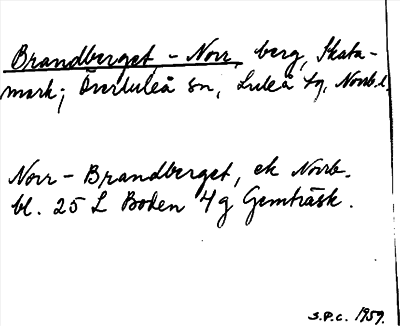 Brandberget, - Norr, berg, Skata-
mark; Överluleå sn, Luleå tg, Norrb. l.
Norr - Brandberget, ek Norrb.
bl. 25 L Boden 4 g Gemträsk.
S.P.C. 1959.